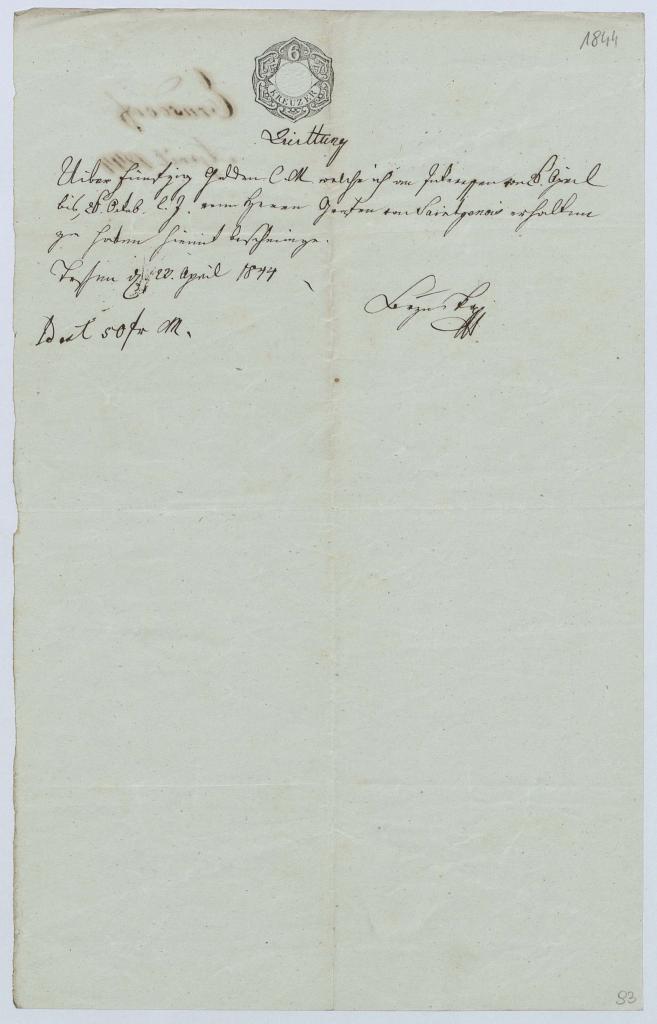 1844
6
KREUZER
Quittung
Uiber fünfzig Gulden C. M. welche ich an Interessen von April
bis Octob. l. J. vom Herrn Grafen von Saintgenois erhalten
zu haben hiemit bescheinige.
Teschen d 22 April 1844
50 fr M.
93